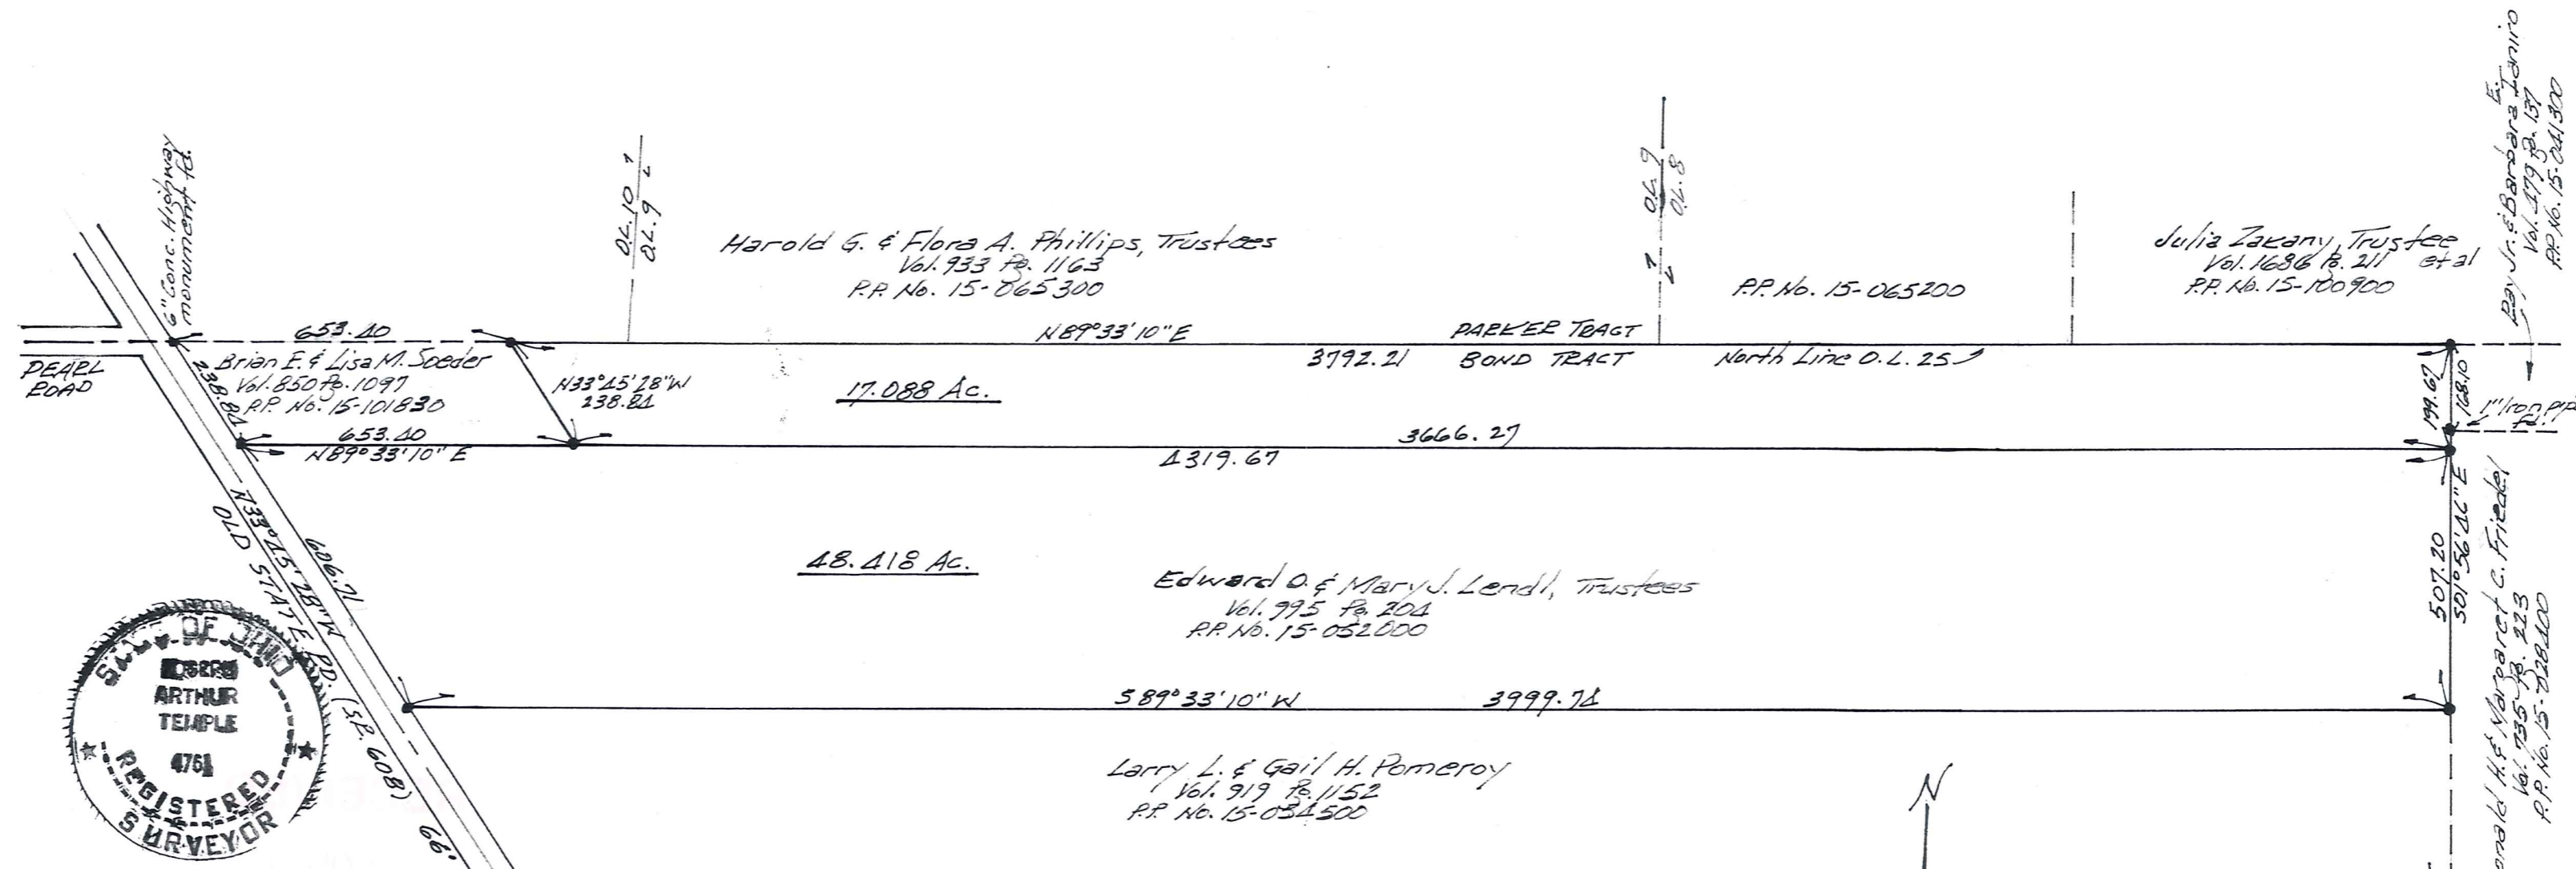 6" Conc. Highway
monument fd.
O.L. 10
O.L. 9
Harold G. & Flora A. Phillips, Trustees
Vol. 933 Pg. 1163
P.P. No. 15-065300
O.L. 9
O.L. 8
P.P. No. 15-065200
Julia Zakany, Trustee
et al
Vol. 1686 Pg. 211
P.P. No. 15-100900
Ray Jr. & Barbara E. Ianiro
Vol. 479 Pg. 137
P.P. No. 15-041300
653.40
N89°33'10"E
PARKER TRACT
3792.21
BOND TRACT
North Line O.L. 25
PEARL
ROAD
Brian E. & Lisa M. Soeder
Vol. 850 Pg. 1097
P.P. No. 15-101830
238.84
N33°45'28"W
238.84
17.088 Ac.
199.67
168.10
1" Iron pip
fd.
653.40
N89°33'10"E
3666.27
4319.67
N33°45'28"W
606.71
OLD STATE RD. (S.R. 608)
66'
48.418 Ac.
Edward O. & Mary J. Lendl, Trustees
Vol. 995 Pg. 204
P.P. No. 15-052000
507.20
S01°56'46"E
onald H. & Margaret C. Friedel
Vol. 735 Pg. 223
P.P. No. 15-028400
S89°33'10"W
3999.74
Larry L. & Gail H. Pomeroy
Vol. 919 Pg. 1152
P.P. No. 15-034500
N
STATE OF OHIO
ARTHUR
TEMPLE
4761
REGISTERED
SURVEYOR